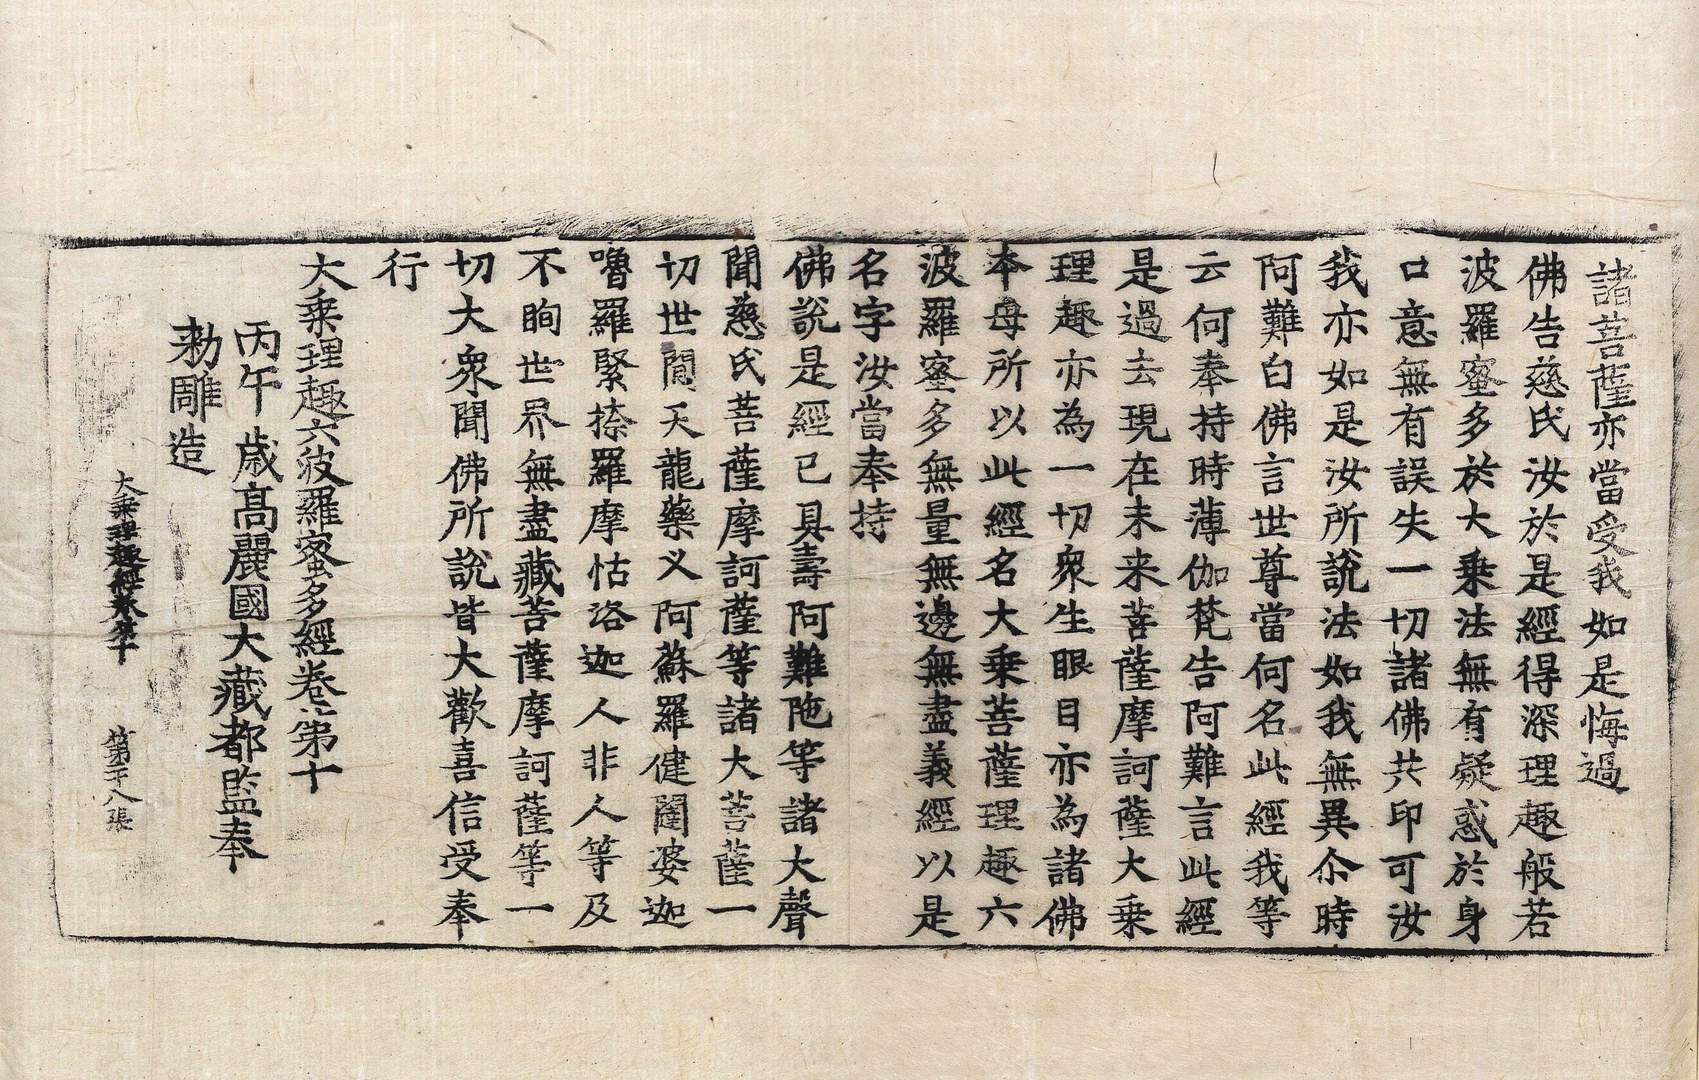 諸菩薩亦當受我如是悔過
佛告慈氏汝於是經得深理趣般若
波羅蜜多於大乗法無有疑惑於身
口意無有誤失一切諸佛共印可汝
我亦如是汝所說法如我無異尒時
阿難白佛言世尊當何名此經我等
云何奉持時薄伽梵告阿難言此經
是過去現在未来菩薩摩訶薩大乗
理趣亦為一切衆生眼目亦為諸佛
本母所以此經名大乗菩薩理趣六
波羅蜜多無量無邊無盡義經以是
名字汝當奉持
佛說是經已具壽阿難陁等諸大聲
聞慈氏菩薩摩訶薩等諸大菩薩一
切世間天龍藥叉阿蘇羅健闥婆迦
嚕羅緊捺羅摩怙洛迦人非人等及
不眴世界無盡藏菩薩摩訶薩等一
切大衆聞佛所說皆大歡喜信受奉
行
大乗理趣六波羅蜜多經卷第十
丙午歳髙麗國大藏都監奉
勑雕造
大乗理趣經卷第十 第二十八張